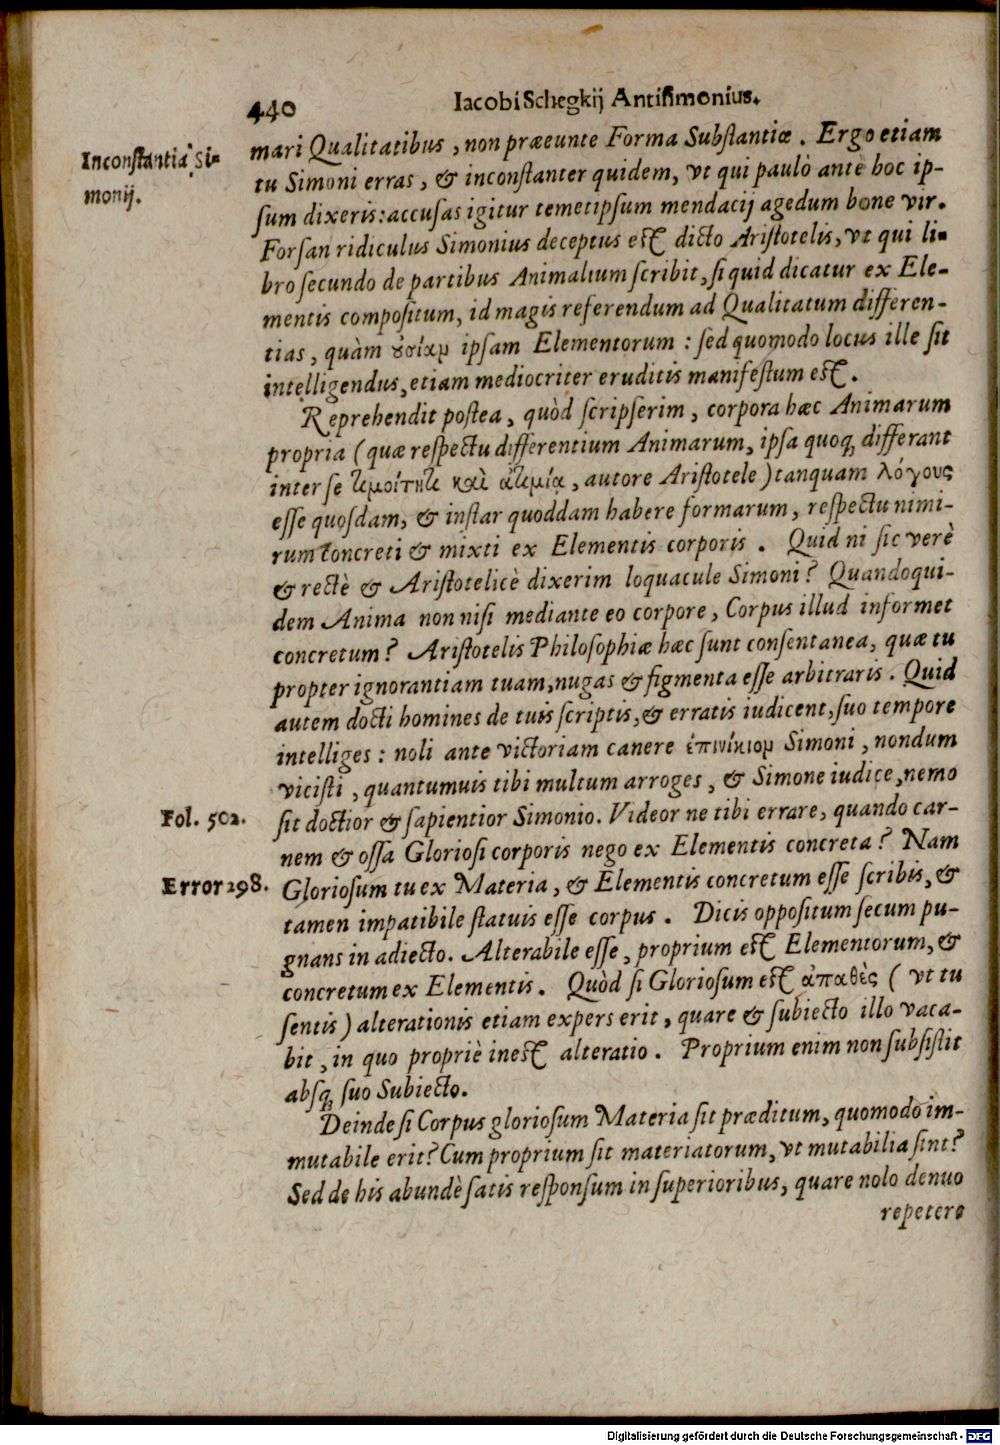 440 Iacobi Schegkij Antisimonius.
Inconstantia Si-
monij.
mari Qualitatibus, non præeunte Forma Substantiæ. Ergo etiam
tu Simoni erras, & inconstanter quidem, vt qui paulò antè hoc ip-
sum dixeris: accusas igitur temetipsum mendacij agedum bone vir.
Forsan ridiculus Simonius deceptus est dicto Aristotelis, vt qui li-
bro secundo de partibus Animalium scribit, si quid dicatur ex Ele-
mentis compositum, id magis referendum ad Qualitatum differen-
tias, quàm ȣ̓σίαμ ipsam Elementorum: sed quomodo locus ille sit
intelligendus, etiam mediocriter eruditis manifestum est.
Reprehendit postea, quòd scripserim, corpora hæc Animarum
propria (quæ respectu differentium Animarum, ipsa quoq; differant
inter se τιμιότητι καὶ ἀτιμίᾳ, autore Aristotele) tanquam λόγους
esse quosdam, & instar quoddam habere formarum, respectu nimi-
rum concreti & mixti ex Elementis corporis. Quid ni sic verè
& rectè & Aristotelicè dixerim loquacule Simoni? Quandoqui-
dem Anima non nisi mediante eo corpore, Corpus illud informet
concretum? Aristotelis Philosophiæ hæc sunt consentanea, quæ tu
propter ignorantiam tuam, nugas & figmenta esse arbitraris. Quid
autem docti homines de tuis scriptis, & erratis iudicent, suo tempore
intelliges: noli ante victoriam canere ἐπινίκιομ Simoni, nondum
vicisti, quantumuis tibi multum arroges, & Simone iudice, nemo
Fol. 502.
sit doctior & sapientior Simonio. Videor ne tibi errare, quando car-
nem & ossa Gloriosi corporis nego ex Elementis concreta? Nam
Error 298.
Gloriosum tu ex Materia, & Elementis concretum esse scribis, &
tamen impatibile statuis esse corpus. Dicis oppositum secum pu-
gnans in adiecto. Alterabile esse, proprium est Elementorum, &
concretum ex Elementis. Quòd si Gloriosum est ἀπαθὲς (vt tu
sentis) alterationis etiam expers erit, quare & subiecto illo vaca-
bit, in quo propriè inest alteratio. Proprium enim non subsistit
absq; suo Subiecto.
Deinde si Corpus gloriosum Materia sit præditum, quomodo im-
mutabile erit? Cum proprium sit materiatorum, vt mutabilia sint?
Sed de his abundè satis responsum in superioribus, quare nolo denuo
repetere
Digitalisierung gefördert durch die Deutsche Forschungsgemeinschaft - DFG